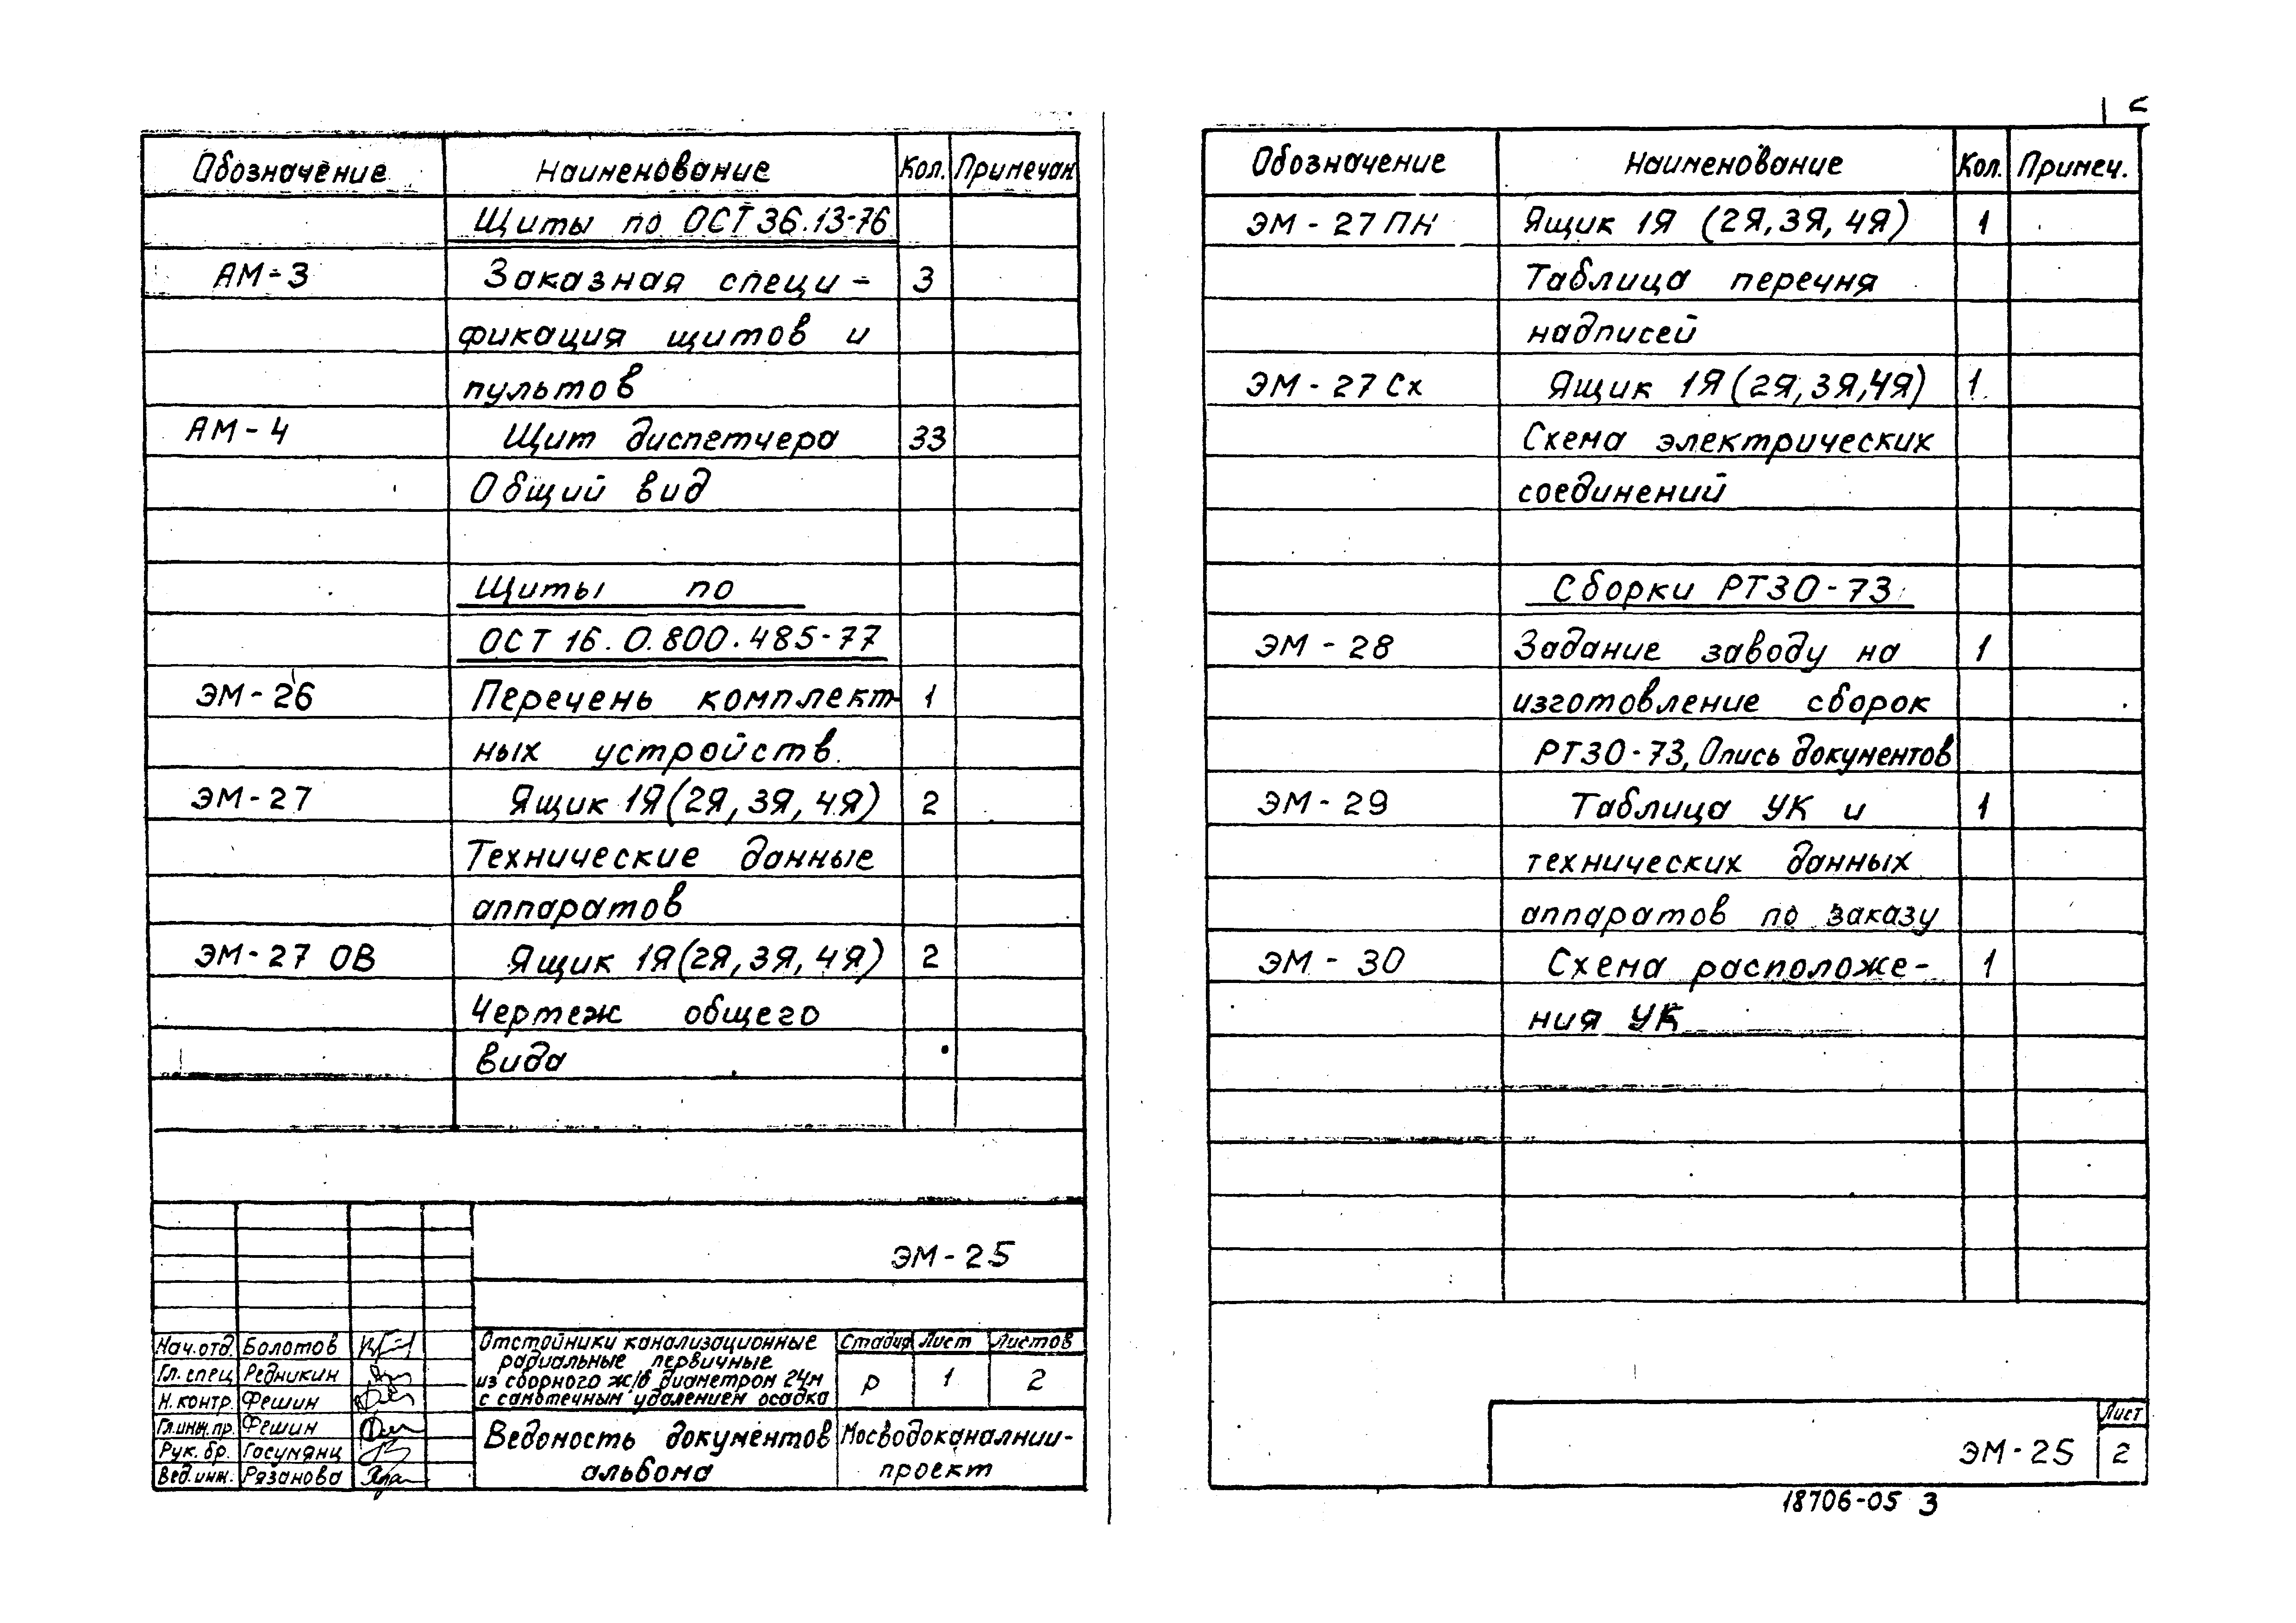 Обозначение Наименование Кол. Примечан
Щиты по ОСТ 36.13-76
АМ-3 Заказная специ- 3
фикация щитов и
пультов
АМ-4 Щит диспетчера 33
Общий вид
Щиты по
ОСТ 16.0.800.485-77
ЭМ-26 Перечень комплект- 1
ных устройств
ЭМ-27 Ящик 1Я(2Я,3Я,4Я) 2
Технические данные
аппаратов
ЭМ-27 ОВ Ящик 1Я(2Я,3Я,4Я) 2
Чертеж общего
вида
ЭМ-25
Нач.отд. Болотов
Гл. спец Редникин
Н.контр. Фешин
Гл.инж.пр. Фешин
Рук. бр. Гасумянц
Вед.инж. Рязанова
Отстойники канализационные
радиальные первичные
из сборного ж/б диаметром 24м
с самотечным удалением осадка
Стадия Лист Листов
р 1 2
Ведомость документов
альбома
Мосводоканалнии-
проект
Обозначение Наименование Кол. Примеч.
ЭМ-27 ПН Ящик 1Я (2Я,3Я,4Я) 1
Таблица перечня
надписей
ЭМ-27 Сх Ящик 1Я(2Я,3Я,4Я) 1
Схема электрических
соединений
Сборки РТ30-73
ЭМ-28 Задание заводу на 1
изготовление сборок
РТ30-73, Опись документов
ЭМ-29 Таблица УК и 1
технических данных
аппаратов по заказу
ЭМ-30 Схема расположе- 1
ния УК
ЭМ-25
Лист
2
18706-05 3